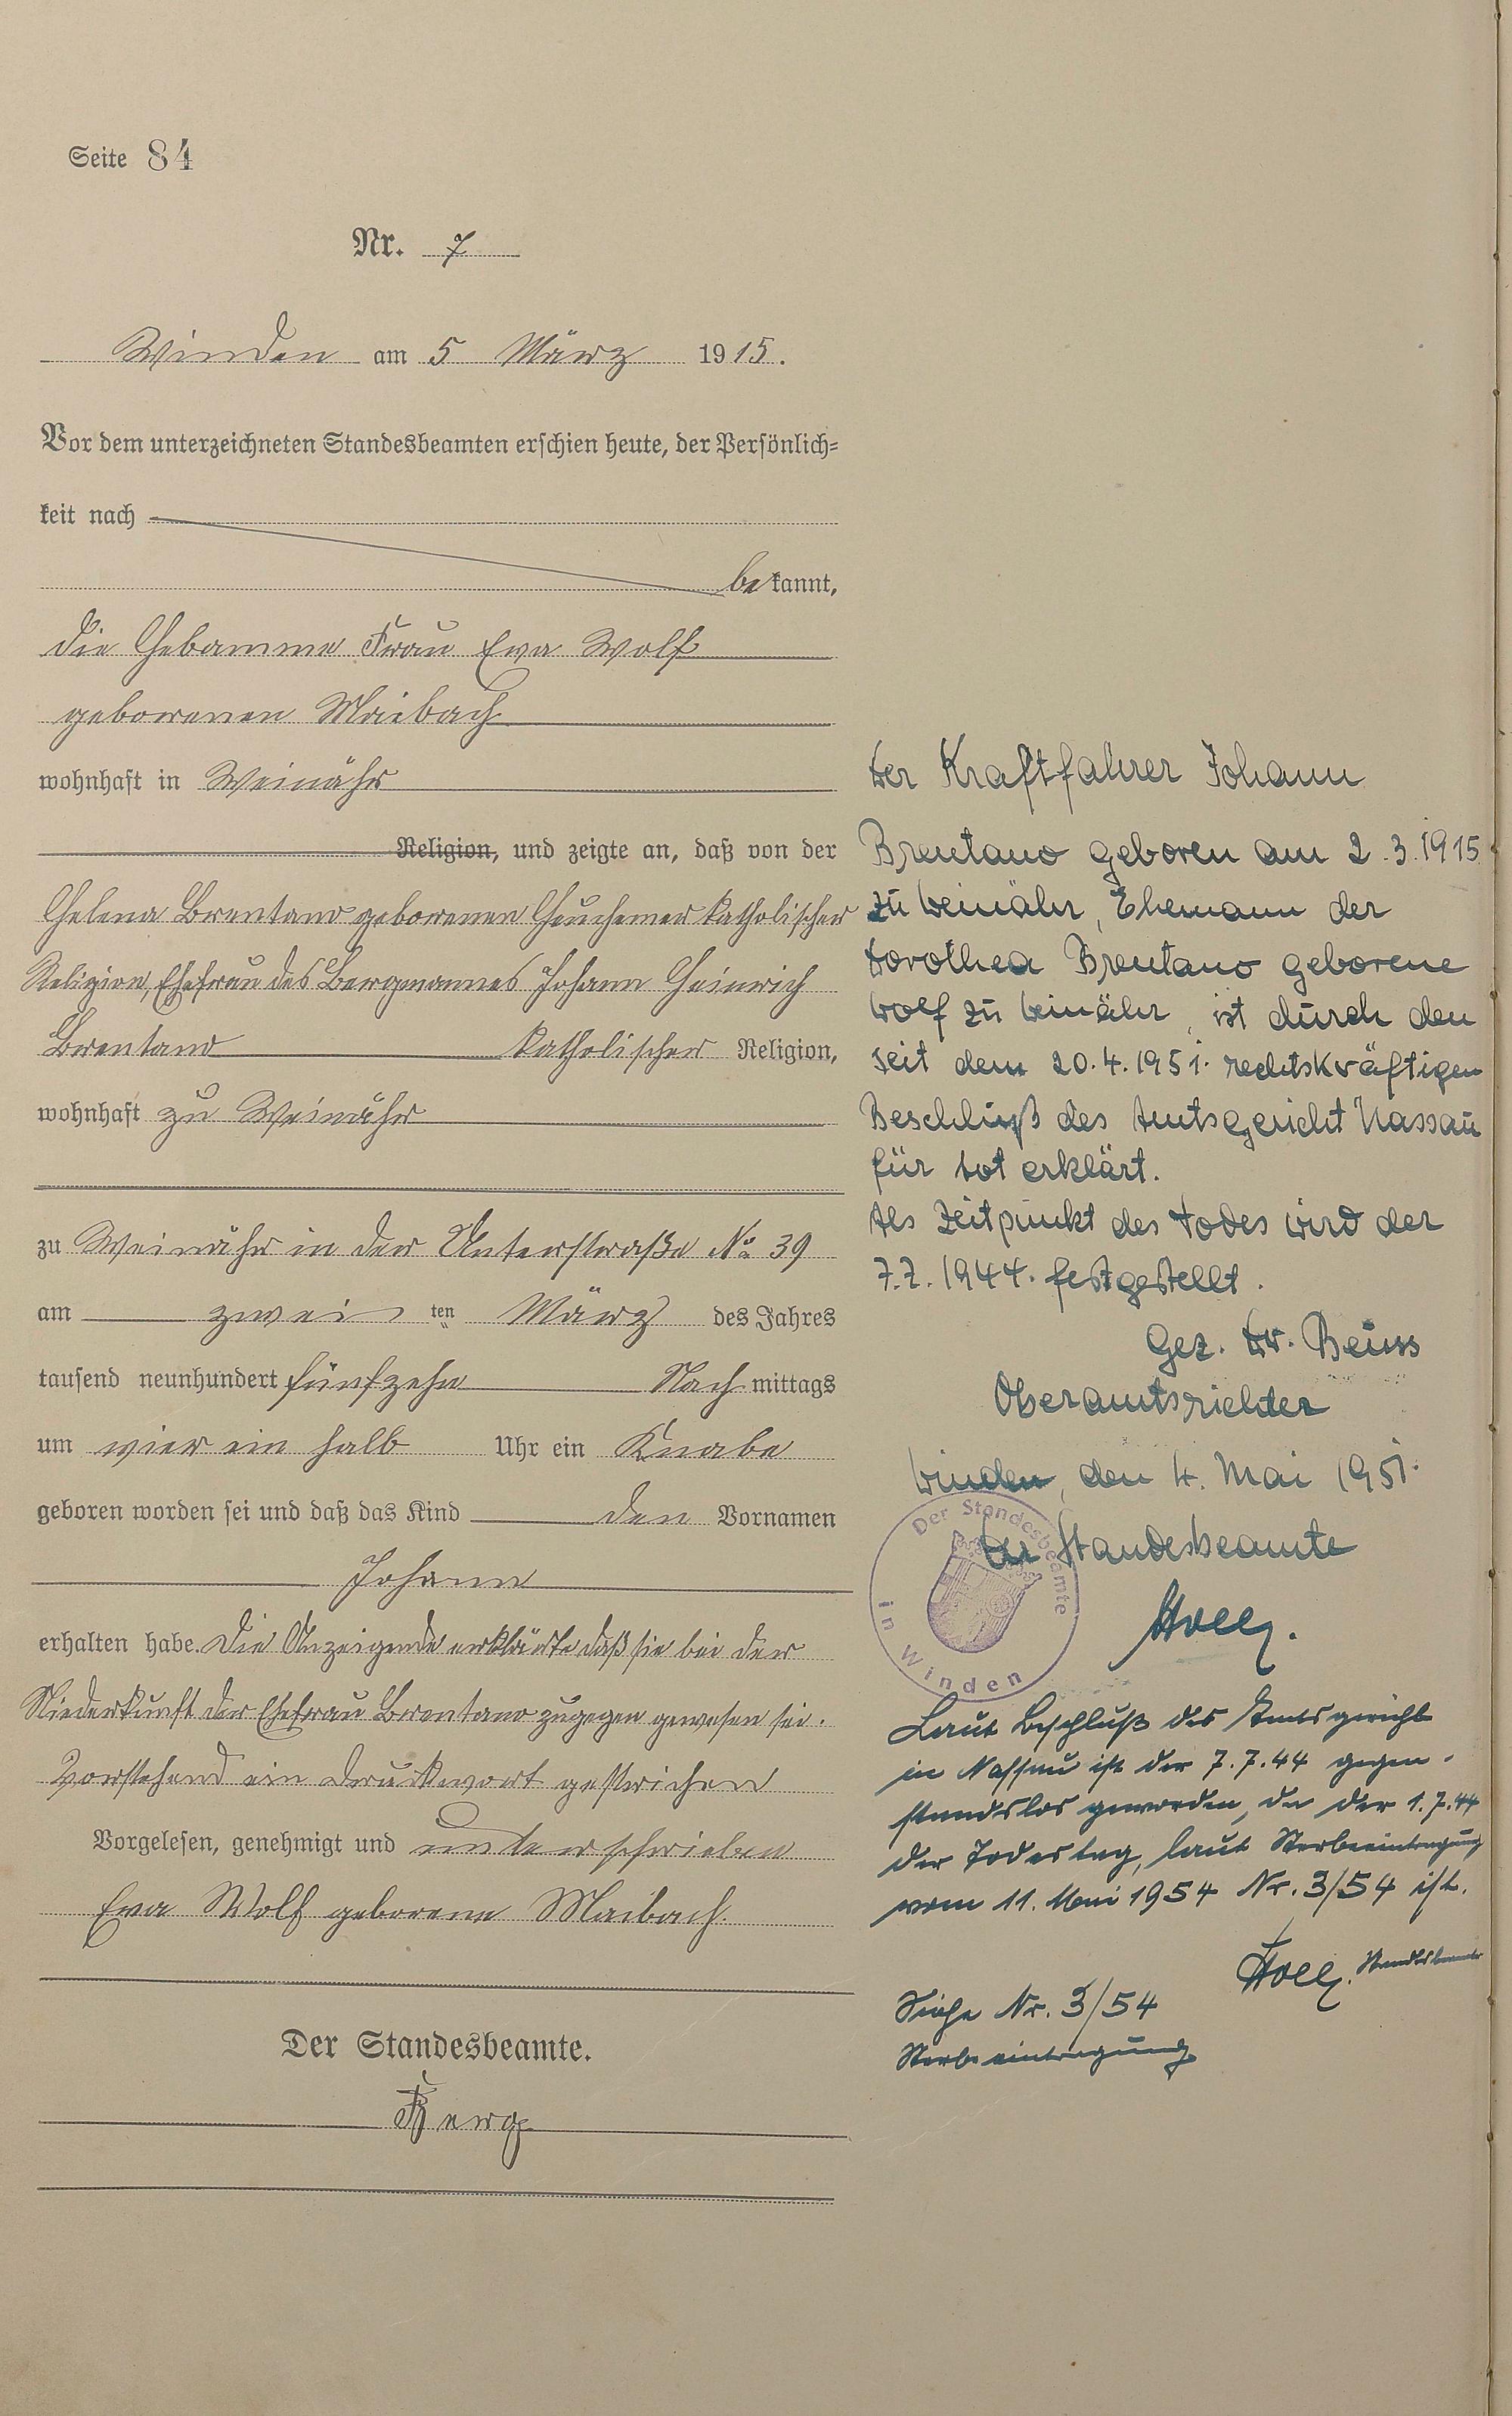 Seite 84
Nr. 7
Winden am 5 März 1915.
Vor dem unterzeichneten Standesbeamten erschien heute, der Persönlich-
keit nach
bekannt,
die Hebamme Frau Eva Wolf
geborenen Maibach
wohnhaft in Weinähr
Religion, und zeigte an, daß von der
Helena Brentano geborenen Heuchemer katholischer
Religion, Ehefrau des Bergmannes Johann Heinrich
Brentano katholischer Religion,
wohnhaft zu Weinähr
zu Weinähr in der Unterstraße No 39
am zwei ten März des Jahres
tausend neunhundert fünfzehn Nachmittags
um vier ein halb Uhr ein Knabe
geboren worden sei und daß das Kind den Vornamen
Johann
erhalten habe. Die Anzeigende erklärte daß sie bei der
Niederkunft der Ehefrau Brentano zugegen gewesen sei.
Vorstehend ein Druckwort gestrichen
Vorgelesen, genehmigt und unterschrieben
Eva Wolf geborene Maibach.
Der Standesbeamte.
Der Kraftfahrer Johann
Brentano geboren am 2.3.1915
zu Weinähr, Ehemann der
Dorothea Brentano geborene
Wolf zu Weinähr, ist durch den
seit dem 20.4.1951. rechtskräftigen
Beschluß des Amtsgericht Nassau
für tot erklärt.
Als Zeitpunkt des Todes wird der
7.7.1944. festgestellt.
Gez. Dr. Beuss
Oberamtsrichter
Winden, den 4. Mai 1951.
Der Standesbeamte
Der Standesbeamte in Winden
Laut Beschluß des Amtsgericht
in Nassau ist der 7.7.44 gegen-
standslos geworden, da der 1.7.44
der Todestag, laut Sterbeeintragung
vom 11. Mai 1954 Nr. 3/54 ist.
Standesbeamter
Siehe Nr. 3/54
Sterbeeintragung